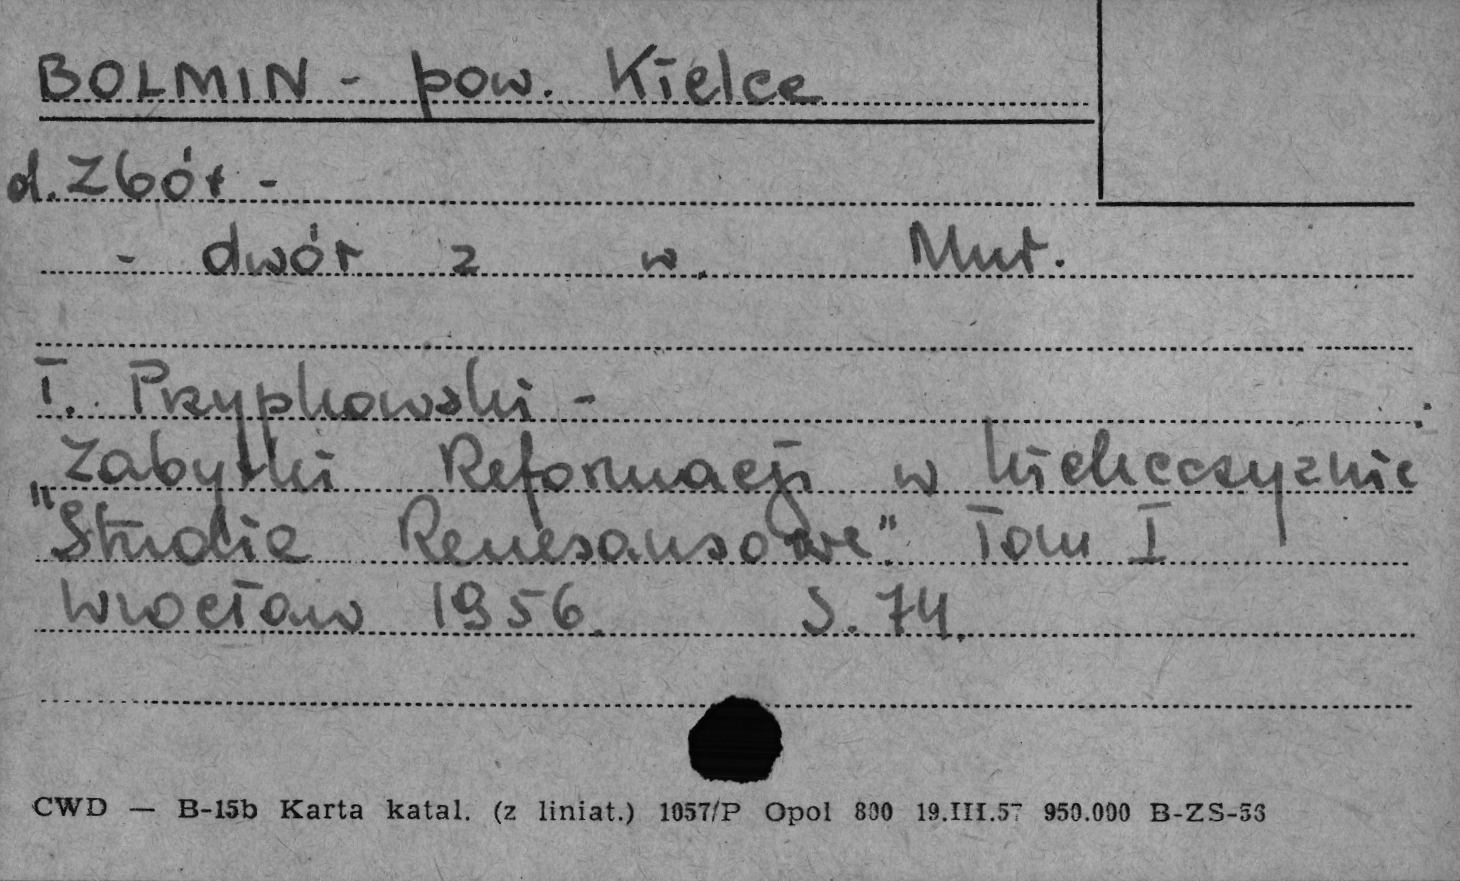 BOLMIN - pow. Kielce
d. Zbór -
- dwór z w. Mur.
T. Przypkowski -
Zabytki Reformacji w kielecczyznie
"Studia Renesansowe". Tom I
Wrocław 1956. S. 74.
CWD — B-15b Karta katal. (z liniat.) 1057/P Opol 800 19.III.57 950.000 B-ZS-53